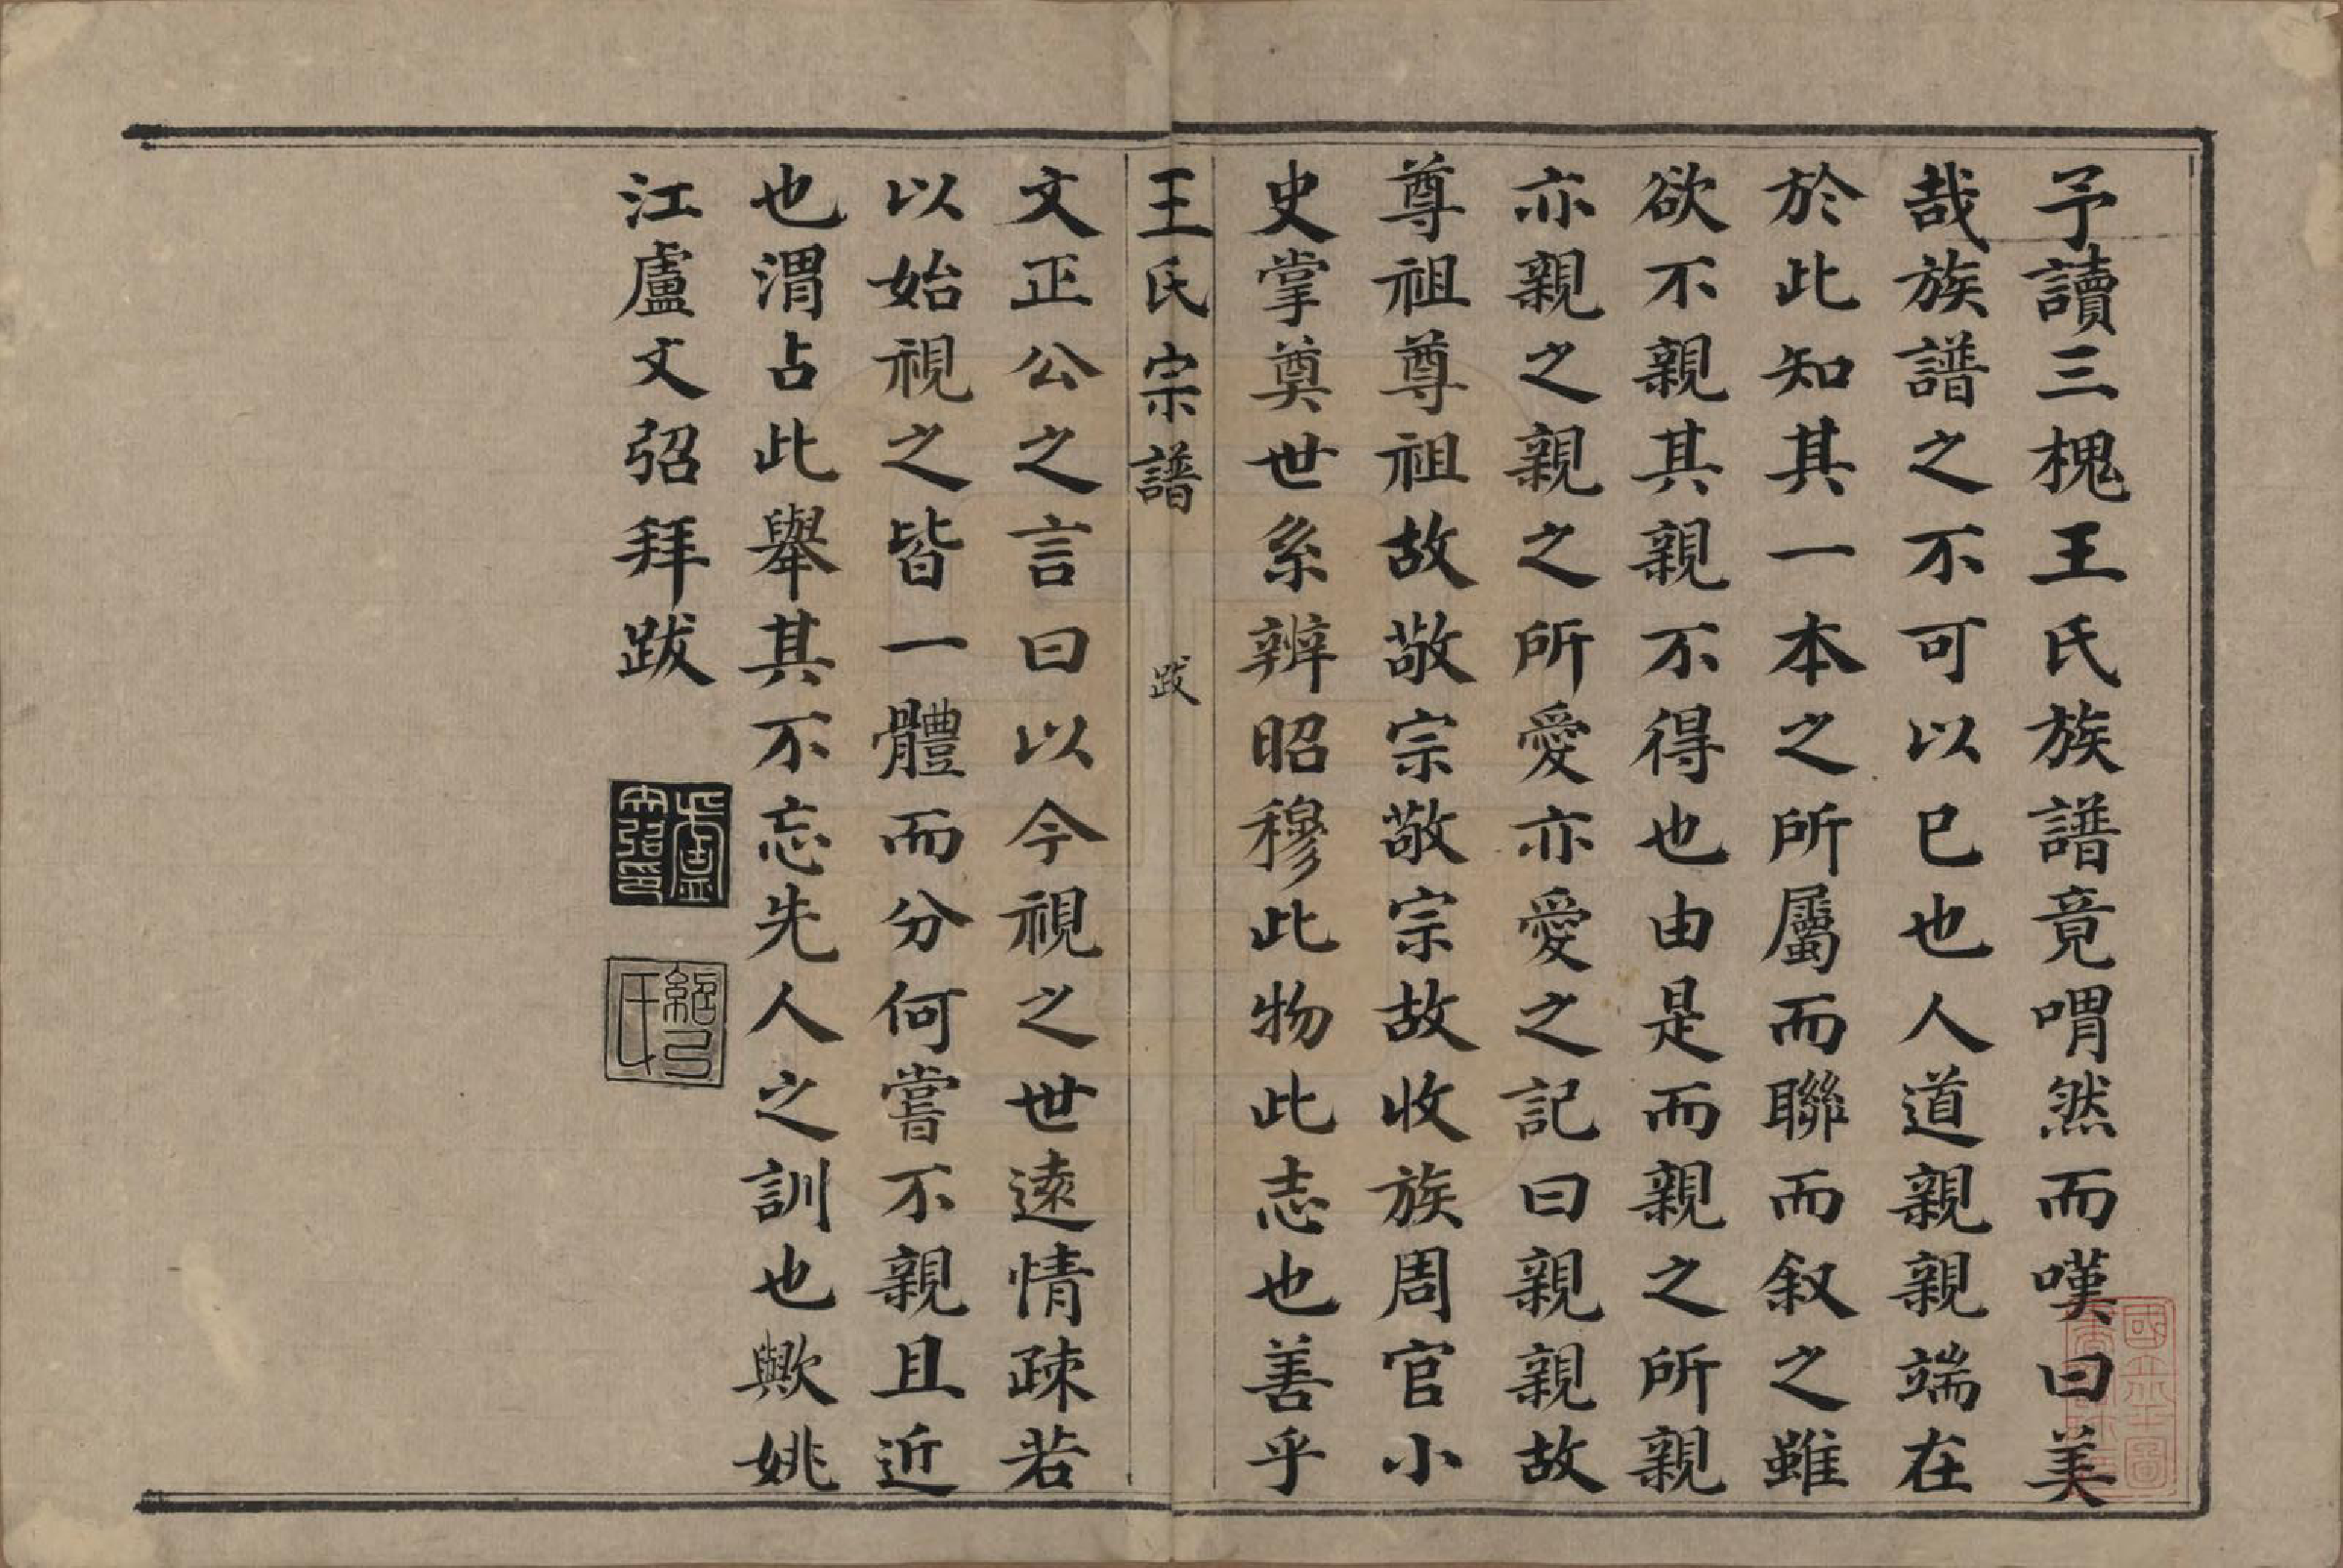 予讀三槐王氏族譜竟喟然而嘆曰美
哉族譜之不可以已也人道親親端在
於此知其一本之所屬而聯而叙之雖
欲不親其親不得也由是而親之所親
亦親之親之所愛亦愛之記曰親親故
尊祖尊祖故敬宗敬宗故收族周官小
史掌奠世系辨昭穆此物此志也善乎
王氏宗譜 跋
文正公之言曰以今視之世遠情疎若
以始視之皆一體而分何嘗不親且近
也渭占此舉其不忘先人之訓也歟姚
江盧文弨拜跋
盧文弨印